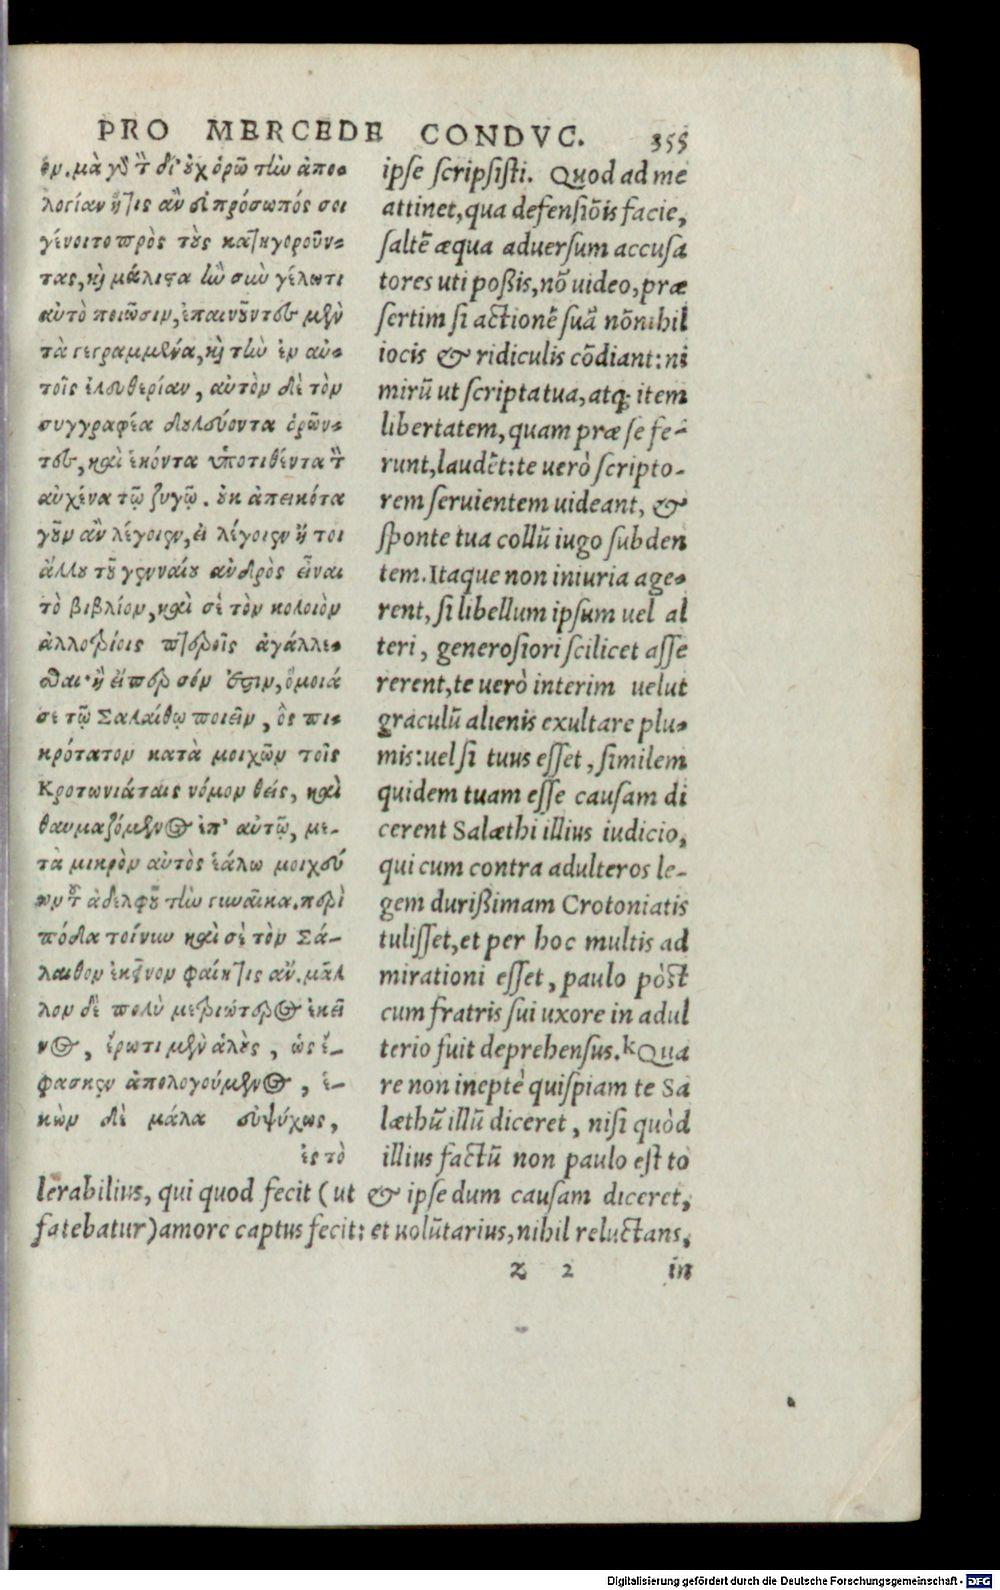 PRO MERCEDE CONDVC. 355
ον. μὰ γδ τ δί οὐχ ὁρῶ τὴν ἀπο-
λογίαν ἥτις ἂν εὐπρόσωπός σοι
γένοιτο πρὸς τοὺς κατηγοροῦν-
τας, καὶ μάλιστα ἢν σὺν γέλωτι
αὐτὸ ποιῶσιν, ἐπαινοῦντες μὲν
τὰ γεγραμμένα, καὶ τὴν ἐν αὐ-
τοῖς ἐλευθερίαν, αὐτὸν δὲ τὸν
συγγραφέα δουλεύοντα ὁρῶν-
τες, καὶ ἑκόντα ὑποτιθέντα τ
αὐχένα τῷ ζυγῷ. οὐκ ἀπεικότα
γοῦν ἂν λέγοιεν, εἰ λέγοιεν ἤ τοι
ἄλλου τοῦ γενναίου ἀνδρὸς εἶναι
τὸ βιβλίον, καὶ σὲ τὸν κολοιὸν
ἀλλοτρίοις πτεροῖς ἀγάλλε-
σθαι· ἢ εἴπερ σόν ἐστιν, ὅμοιά
σε τῷ Σαλαίθῳ ποιεῖν, ὃς πι-
κρότατον κατὰ μοιχῶν τοῖς
Κροτωνιάταις νόμον θείς, καὶ
θαυμαζόμενος ἐπ' αὐτῷ, με-
τὰ μικρὸν αὐτὸς ἑάλω μοιχεύ
ων τ ἀδελφοῦ τὴν γυναῖκα. περὶ
πόδα τοίνυν καὶ σὲ τὸν Σά-
λαιθον ἐκεῖνον φαίη τις ἄν. μᾶλ
λον δὲ πολὺ μετριώτερος ἐκεῖ
νος, ἔρωτι μὲν ἁλοὺς, ὡς ἔ-
φασκεν ἀπολογούμενος, ἑ-
κὼν δὲ μάλα εὐψύχως,
ἐς τὸ
ipse scripsisti. Quod ad me
attinet, qua defensiōis facie,
saltē æqua aduersum accusa
tores uti poßis, nō uideo, præ
sertim si actionē suā nōnihil
iocis & ridiculis cōdiant: ni
mirū ut scripta tua, atq; item
libertatem, quam præ se fe-
runt, laudēt: te uerò scripto-
rem seruientem uideant, &
sponte tua collū iugo subden
tem. Itaque non iniuria age-
rent, si libellum ipsum uel al
teri, generosiori scilicet asse
rerent, te uerò interim uelut
graculū alienis exultare plu-
mis: uel si tuus esset, similem
quidem tuam esse causam di
cerent Salæthi illius iudicio,
qui cum contra adulteros le-
gem durißimam Crotoniatis
tulisset, et per hoc multis ad
mirationi esset, paulo pòst
cum fratris sui uxore in adul
terio fuit deprehensus. k Qua
re non ineptè quispiam te Sa
læthū illū diceret, nisi quòd
illius factū non paulo est to
lerabilius, qui quod fecit (ut & ipse dum causam diceret,
fatebatur) amore captus fecit: et uolūtarius, nihil reluctans,
z 2 in
Digitalisierung gefördert durch die Deutsche Forschungsgemeinschaft - DFG